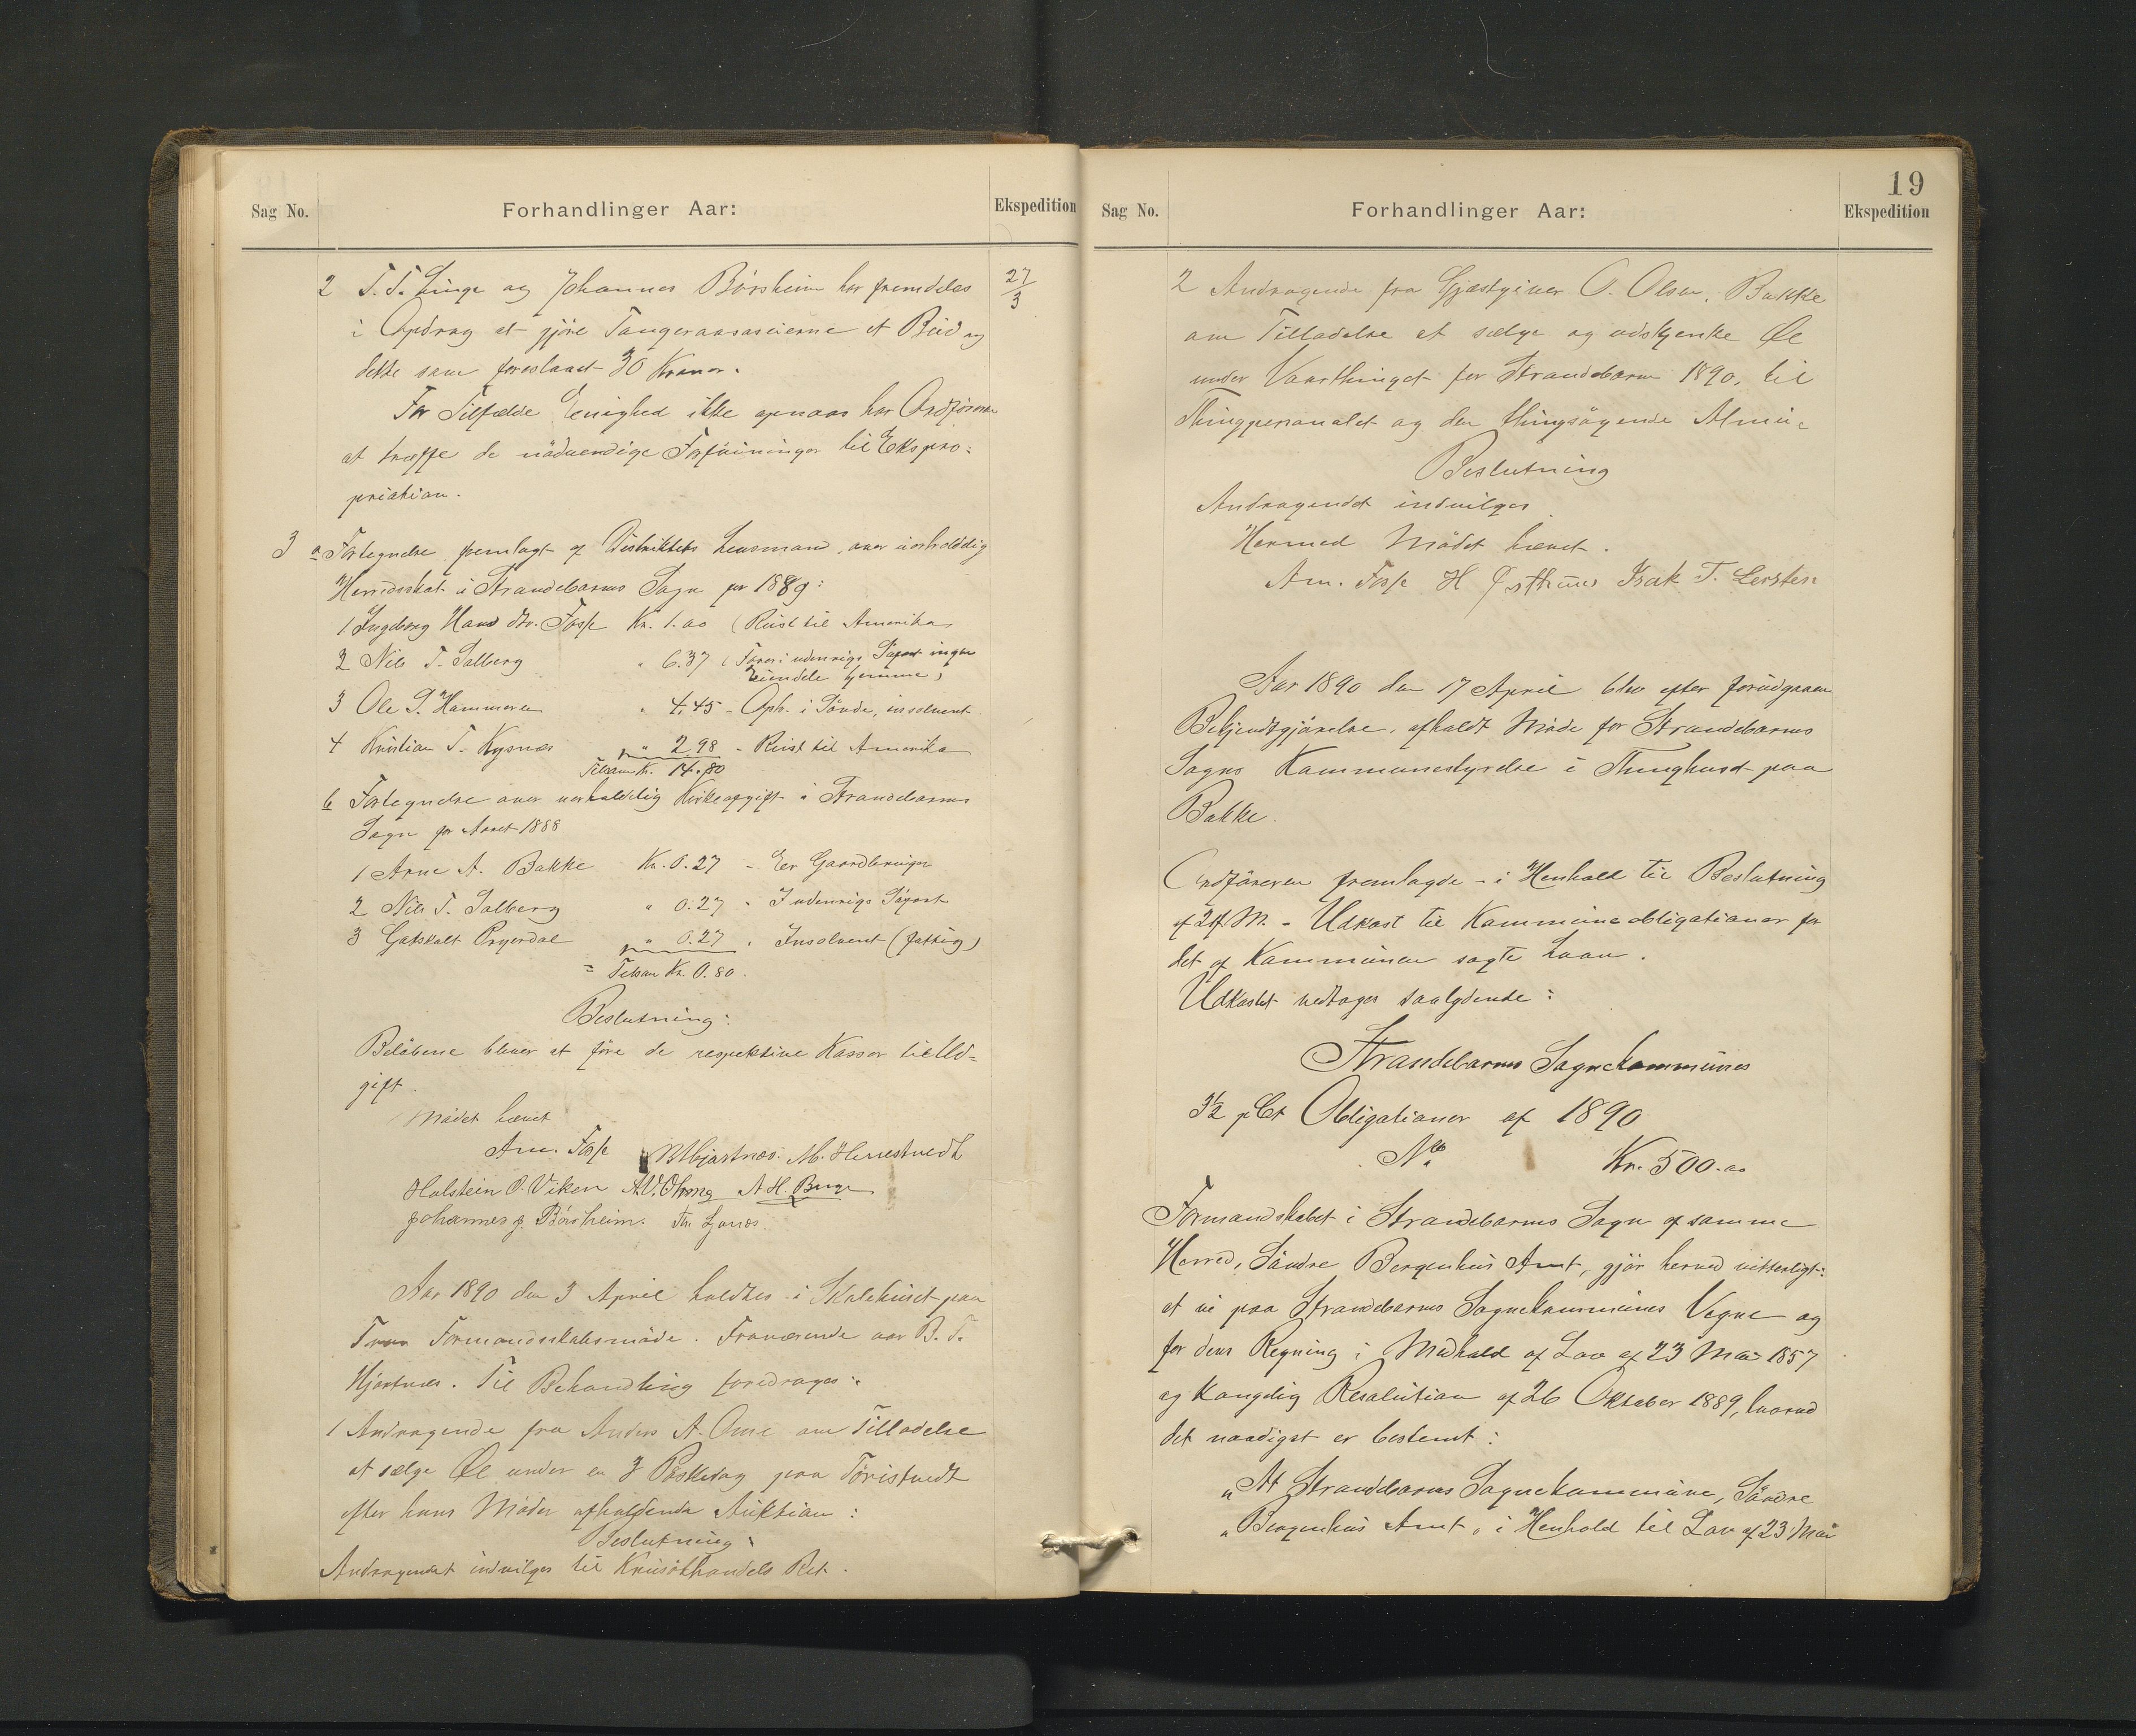 Sag No.
Forhandlinger Aar:
Ekspedition
2 T. T. Linge og Johannes Börsheim har fremdeles
27/3
i Opdrag at gjöre Tangeraasseierne et Bud og
dette som foreslaaet 30 Kroner.
For Tilfælde Enighed ikke opnaaes har Ordföreren
at træffe de nödvendige Föjninger til Ekspro=
priation.
3 a Fortegnelse fremlagt af Distriktets Lensmand over uerholdelig
Herredsskat i Strandebarms Sogn for 1889:
1. Ingeborg Hans dtr. Fosse Kr. 1.00 (Reist til Amerika
2 Nils T. Solberg " 6.37 (Farer i udenrigs Söfart ingen
Eiendele hjemme)
3 Ole P. Hammeren " 4.45 - Oph. i Sönde, insolvent
4 Kristian T. Kysnæs " 2.98 - Reist til Amerika
Tilsam Kr. 14.80
b Fortegnelse over uerholdelig Kirkeafgift i Strandebarms
Sogn for Aaret 1888
1 Arne A. Bakke Kr. 0.27 - Er Gaardbruger
2 Nils T. Solberg " 0.27 - I udenrigs Söfart
3 Gotskalk " 0.27 - Insolvent (fattig)
= Tilsam Kr. 0.80.
Beslutning:
Belöbene bliver at före de respektive Kasser til Ud=
gift.
Mödet hævet
Arn. Fosse B Hjartnæs. M. Herrestvedt
Holstein O. Viken A. H. Berge
Johannes J. Börsheim.
Aar 1890 den 3 April holdtes i Skolehuset paa
Formandsskabsmöde. Fraværende var B. T.
Hjartnæs. Til Behandling foredroges:
1 Andragende fra Anders A. Omre om Tilladelse
at sælge Öl under en 3 Paaskedag paa Töristvedt
efter hans Moder afholdende Auktion:
Beslutning:
Andragendet indvilges til Ret.
19
Sag No.
Forhandlinger Aar:
Ekspedition
2 Andragende fra Gjæstgiver O. Olsen, Bakke
om Tilladelse at sælge og udskjenke Öl
under Vaarthinget for Strandebarm 1890, til
Thingpersonalet og den thingsögende Almue
Beslutning
Andragendet indvilges
Hermed Mödet hævet.
Arn. Fosse H Östhuus Isak T. Lersten
Aar 1890 den 17 April blev efter forudgaaen
Bekjendtgjörelse, afholdt Möde for Strandebarms
Sogns Kommunestyrelse i Thinghuset paa
Bakke.
Ordföreren fremlagde - i Henhold til Beslutning
af 24 f. M. - Udkast til Kommuneobligationer for
det af Kommunen sögte Laan.
Udkastet vedtoges saalydende:
Strandebarms Sognekommunes
3½ pCt Obligationer af 1890
No. Kr. 500.00
Formandskabet i Strandebarms Sogn af samme
Herred, Söndre Bergenhus Amt, gjör herved vitterligt:
at vi paa Strandebarms Sognekommunes Vegne og
for dens Regning i Medhold af Lov af 23 Mai 1857
og Kongelig Resolution af 26 Oktober 1889, hvorved
det naadigst er bestemt:
"At Strandebarms Sognekommune, Söndre
"Bergenhus Amt, i Henhold til Lov af 23 Mai